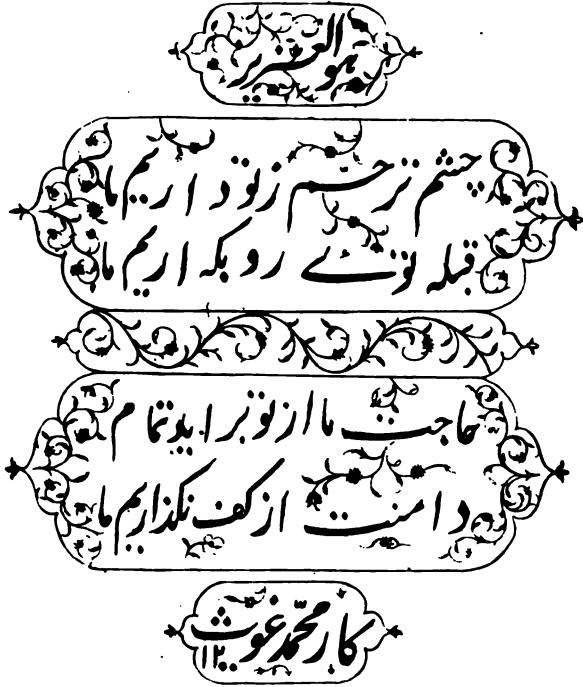 هو العزیز
چشم ترحم ز تو داریم ما
قبله توئے رو بکه اریم ما
حاجت ما از تو براید تمام
دامنت از کف نکذاریم ما
کار محمد غوث
۱۲۰۰